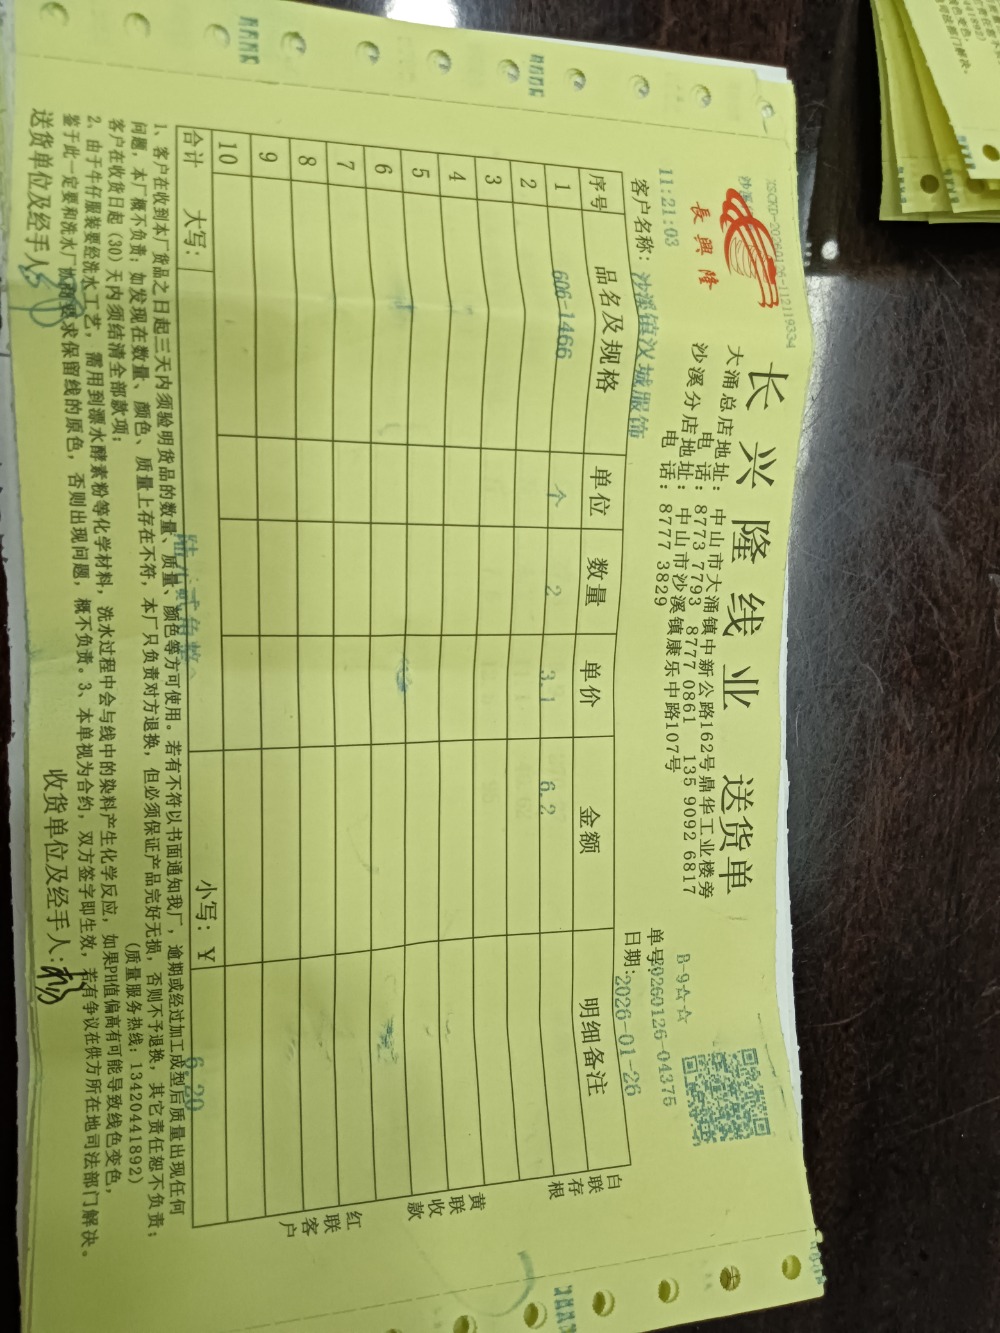 XSCKD-20260126-112119334
長興隆
11:21:03
长兴隆线业 送货单
大涌总店地址：中山市大涌镇中新公路162号鼎华工业楼旁
电 话：8773 7793 8777 0861 135 9092 6817
沙溪分店地址：中山市沙溪镇康乐中路107号
电 话：8777 3829
B-9☆☆
单号:20260126-04375
客户名称：沙溪镇汉城服饰
日期:2026-01-26
序号 品名及规格 单位 数量 单价 金额 明细备注
1 606-1466 个 2 3.1 6.2
2
3
4
5
6
7
8
9
10
合计 大写：陆元贰角整 小写：￥ 6.20
白联存根
黄联收款
红联客户
1、客户在收到本厂货品之日起三天内须验明货品的数量、质量、颜色等方可使用。若有不符以书面通知我厂，逾期或经过加工成型后质量出现任何
问题，本厂概不负责；如发现在数量、颜色、质量上存在不符，本厂只负责对方退换，但必须保证产品完好无损，否则不予退换，其它责任恕不负责；
客户在收货日起（30）天内须结清全部款项； （质量服务热线：13420441892）
2、由于牛仔服装要经洗水工艺，需用到漂水酵素粉等化学材料，洗水过程中会与线中的染料产生化学反应，如果PH值偏高有可能导致线色变色，
鉴于此一定要和洗水厂协商要求保留线的原色，否则出现问题，概不负责。3、本单视为合约，双方签字即生效，若有争议在供方所在地司法部门解决。
送货单位及经手人： 收货单位及经手人：